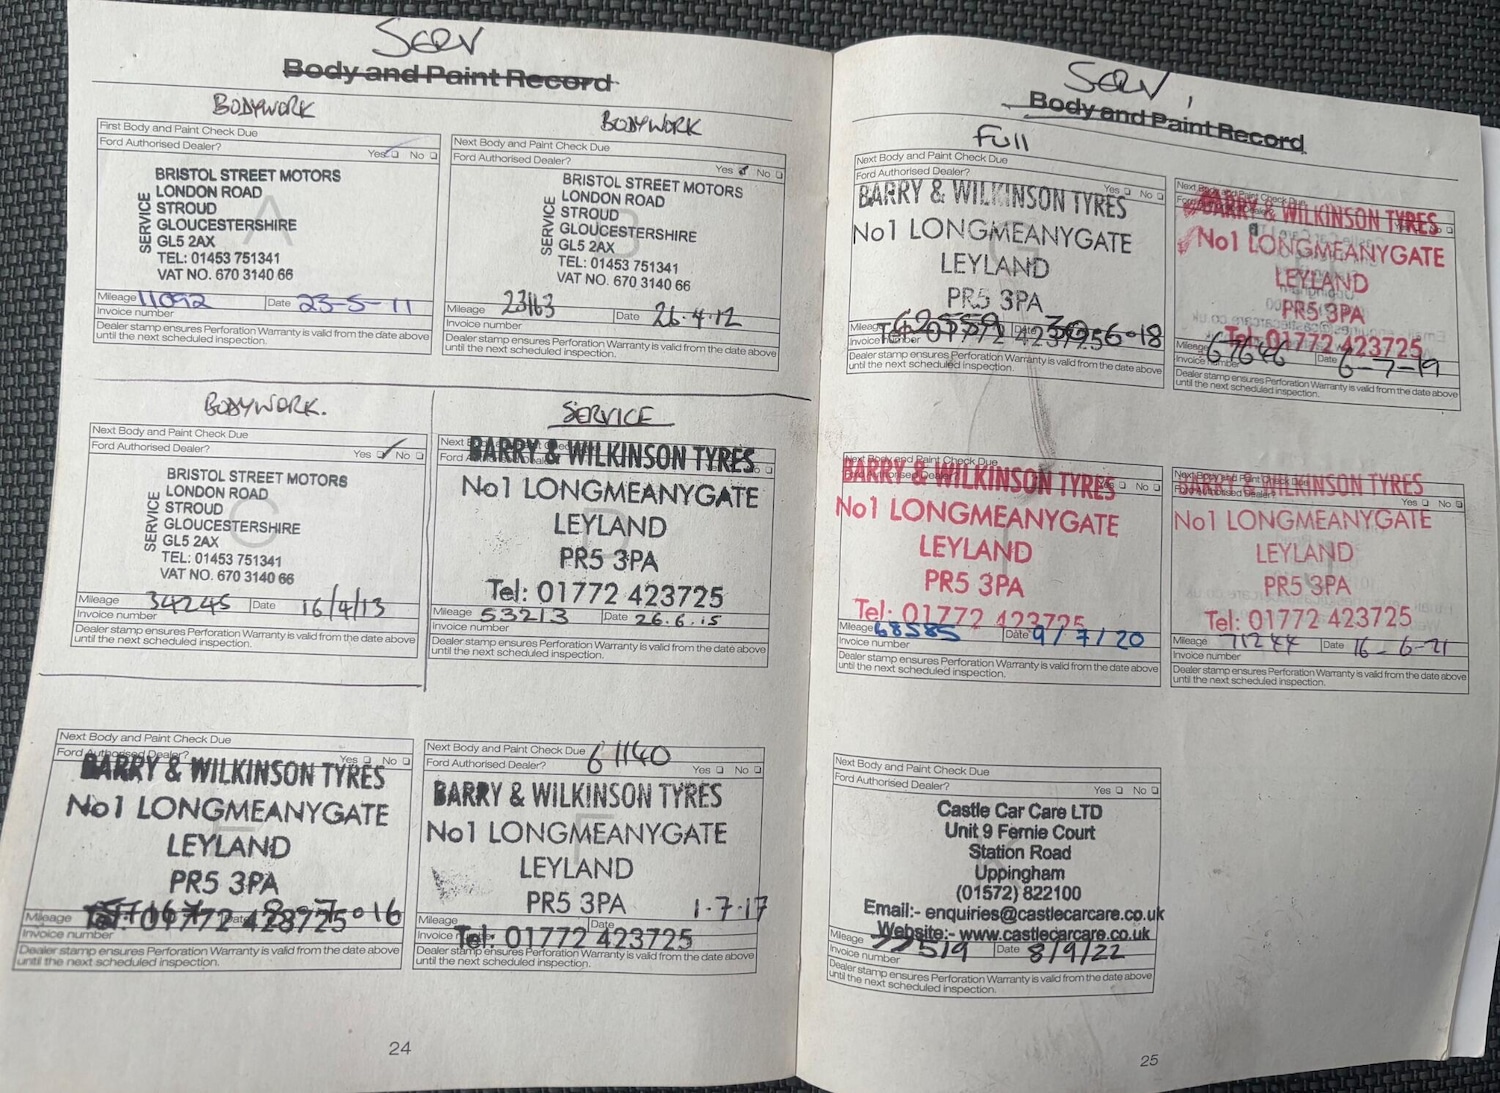 Serv
Body and Paint Record
BODYWORK
First Body and Paint Check Due
Ford Authorised Dealer?
Yes No
SERVICE
BRISTOL STREET MOTORS
LONDON ROAD
STROUD
GLOUCESTERSHIRE
GL5 2AX
TEL: 01453 751341
VAT NO. 670 3140 66
Mileage 11092 Date 23-5-11
Invoice number
Dealer stamp ensures Perforation Warranty is valid from the date above
until the next scheduled inspection.
BODYWORK
Next Body and Paint Check Due
Ford Authorised Dealer?
Yes No
SERVICE
BRISTOL STREET MOTORS
LONDON ROAD
STROUD
GLOUCESTERSHIRE
GL5 2AX
TEL: 01453 751341
VAT NO. 670 3140 66
Mileage 23163 Date 26.4.12
Invoice number
Dealer stamp ensures Perforation Warranty is valid from the date above
until the next scheduled inspection.
BODYWORK.
Next Body and Paint Check Due
Ford Authorised Dealer?
Yes No
SERVICE
BRISTOL STREET MOTORS
LONDON ROAD
STROUD
GLOUCESTERSHIRE
GL5 2AX
TEL: 01453 751341
VAT NO. 670 3140 66
Mileage 34245 Date 16/4/13
Invoice number
Dealer stamp ensures Perforation Warranty is valid from the date above
until the next scheduled inspection.
SERVICE
BARRY & WILKINSON TYRES
No1 LONGMEANYGATE
LEYLAND
PR5 3PA
Tel: 01772 423725
Mileage 53213 Date 26.6.15
Invoice number
Dealer stamp ensures Perforation Warranty is valid from the date above
until the next scheduled inspection.
Next Body and Paint Check Due
Ford Authorised Dealer?
Yes No
BARRY & WILKINSON TYRES
No1 LONGMEANYGATE
LEYLAND
PR5 3PA
Tel: 01772 423725
Mileage Date 8-7-016
Invoice number
Dealer stamp ensures Perforation Warranty is valid from the date above
until the next scheduled inspection.
Next Body and Paint Check Due 61140
Ford Authorised Dealer?
Yes No
BARRY & WILKINSON TYRES
No1 LONGMEANYGATE
LEYLAND
PR5 3PA
1.7.17
Mileage Date
Invoice number
Tel: 01772 423725
Dealer stamp ensures Perforation Warranty is valid from the date above
until the next scheduled inspection.
24
Serv
Body and Paint Record
Full
Next Body and Paint Check Due
Ford Authorised Dealer?
Yes No
BARRY & WILKINSON TYRES
No1 LONGMEANYGATE
LEYLAND
PR5 3PA
Tel: 01772 423725
Mileage 62559 Date 30-6-018
Invoice number
Dealer stamp ensures Perforation Warranty is valid from the date above
until the next scheduled inspection.
BARRY & WILKINSON TYRES
No1 LONGMEANYGATE
LEYLAND
PR5 3PA
Tel: 01772 423725
Mileage 67646 Date 6-7-19
Invoice number
Dealer stamp ensures Perforation Warranty is valid from the date above
until the next scheduled inspection.
Next Body and Paint Check Due
BARRY & WILKINSON TYRES
Yes No
No1 LONGMEANYGATE
LEYLAND
PR5 3PA
Tel: 01772 423725
Mileage 68585 Date 9/7/20
Invoice number
Dealer stamp ensures Perforation Warranty is valid from the date above
until the next scheduled inspection.
Next Body and Paint Check Due
BARRY & WILKINSON TYRES
Yes No
No1 LONGMEANYGATE
LEYLAND
PR5 3PA
Tel: 01772 423725
Mileage 71244 Date 16-6-21
Invoice number
Dealer stamp ensures Perforation Warranty is valid from the date above
until the next scheduled inspection.
Next Body and Paint Check Due
Ford Authorised Dealer?
Yes No
Castle Car Care LTD
Unit 9 Fernie Court
Station Road
Uppingham
(01572) 822100
Email:- enquiries@castlecarcare.co.uk
Website:- www.castlecarcare.co.uk
Mileage 77519 Date 8/9/22
Invoice number
Dealer stamp ensures Perforation Warranty is valid from the date above
until the next scheduled inspection.
25